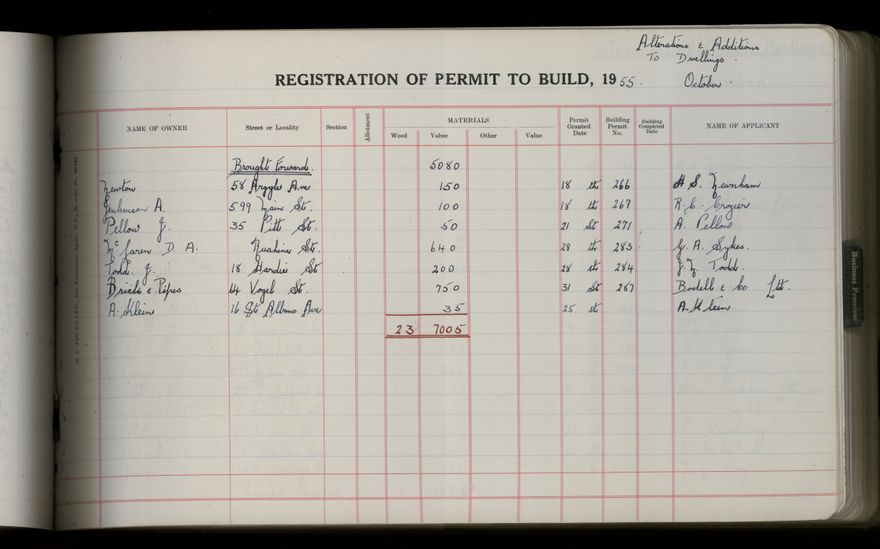 Alterations & Additions
To Dwellings.
REGISTRATION OF PERMIT TO BUILD, 1955. October.
NAME OF OWNER Street or Locality Section Allotment MATERIALS Permit Granted Date Building Permit No. Building Completed Date NAME OF APPLICANT
Wood Value Other Value
Brought Forward 5080
Newton 58 Argyle Ave 150 18 th 266 H. S. Newnham
Jenkinson A. 599 Main St. 100 18 th 267 R. C. Crozier
Pellow J. 35 Pitt St. 50 21 st 271 A. Pellow
McLaren D. A. Ruahine St. 640 28 th 283 G. A. Sykes.
Todd. J. 18 Hardie St 200 28 th 284 J. Todd.
Bricks & Pipes 44 Vogel St. 750 31 st 287 & Co Ltd.
A. Klein 16 St Albans Ave 35 25 A. Klein
23 7005
Business Premises